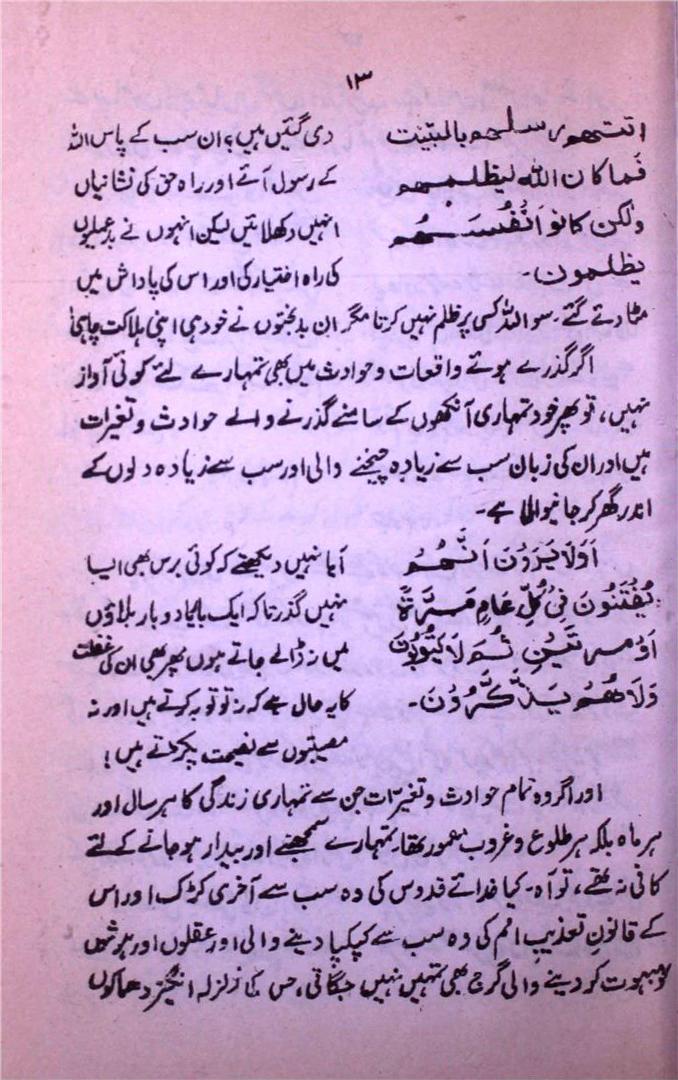 ۱۳
اتتھم رسلھم بالبینت دی گئیں ہیں؟ ان سب کے پاس اللہ
فما کان اللہ لیظلمھم کے رسول آئے اور راہ حق کی نشانیاں
ولکن کانو اَنْفُسَھُم انہیں دکھلائیں لیکن انہوں نے بدعملیوں
یظلمون۔ کی راہ اختیار کی اور اس کی پاداش میں
مٹا دئے گئے۔ سو اللہ کسی پر ظلم نہیں کرتا مگر ان بدبختوں نے خود ہی اپنی ہلاکت چاہی!
اگر گذرے ہوئے واقعات و حوادث میں بھی تمہارے لئے کوئی آواز
نہیں، تو پھر خود تمہاری آنکھوں کے سامنے گذرنے والے حوادث و تغیرات
ہیں اور ان کی زبان سب سے زیادہ چیخنے والی اور سب سے زیادہ دلوں کے
اندر گھر کر جانیوالا ہے۔
اَوَلَا یَرَوْنَ اَنَّھُمْ آیا نہیں دیکھتے کہ کوئی برس بھی ایسا
یُفْتَنُوْنَ فِیْ کُلِّ عَامٍ مَرَّۃً نہیں گذرتا کہ ایک بار یا دو بار بلاؤں
اَوْ مرتَیْنِ ثُمَّ لَا یَتُوْبُوْنَ میں نہ ڈالے جاتے ہوں پھر بھی ان کی غفلت
وَلَا ھُمْ یَذَّکَّرُوْنَ۔ کا یہ حال ہے کہ نہ تو توبہ کرتے ہیں اور نہ
مصیبتوں سے نصیحت پکڑتے ہیں!
اور اگر وہ تمام حوادث و تغیرات جن سے تمہاری زندگی کا ہر سال اور
ہر ماہ بلکہ ہر طلوع و غروب معمور تھا، تمہارے سمجھنے اور بیدار ہو جانے کے لئے
کافی نہ تھے، تو آہ۔ کیا خدائے قدوس کی وہ سب سے آخری کڑک اور اس
کے قانونِ تعذیبِ امم کی وہ سب سے کپکپا دینے والی اور عقلوں اور ہوشوں
کو مبہوت کر دینے والی گرج بھی تمہیں نہیں جگاتی، جس کے زلزلہ انگیز دھماکوں